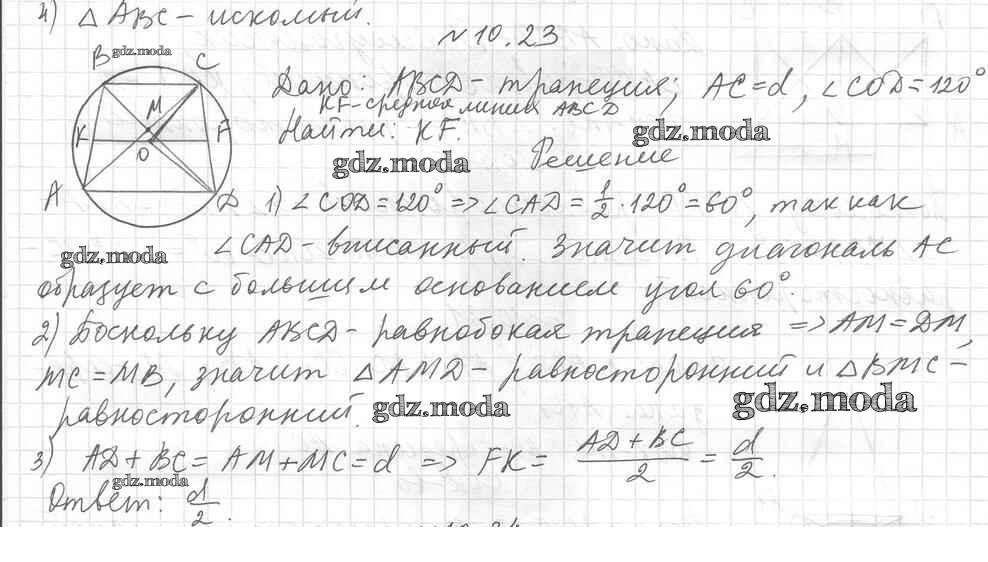 4) △ ABC – искомый.
№ 10.23
B gdz.moda C
Дано: ABCD – трапеция; AC = d, ∠COD = 120°
KF – средняя линия ABCD
M
K F
Найти: KF. gdz.moda
O
gdz.moda Решение
A D
1) ∠COD = 120° => ∠CAD = 1/2 · 120° = 60°, так как
gdz.moda ∠CAD – вписанный. Значит диагональ AC
образует с большим основанием угол 60°.
2) Поскольку ABCD – равнобокая трапеция => AM = DM,
MC = MB, значит △AMD – равносторонний и △BMC –
равносторонний. gdz.moda gdz.moda
3) AD + BC = AM + MC = d => FK = (AD + BC)/2 = d/2.
gdz.moda
Ответ: d/2.